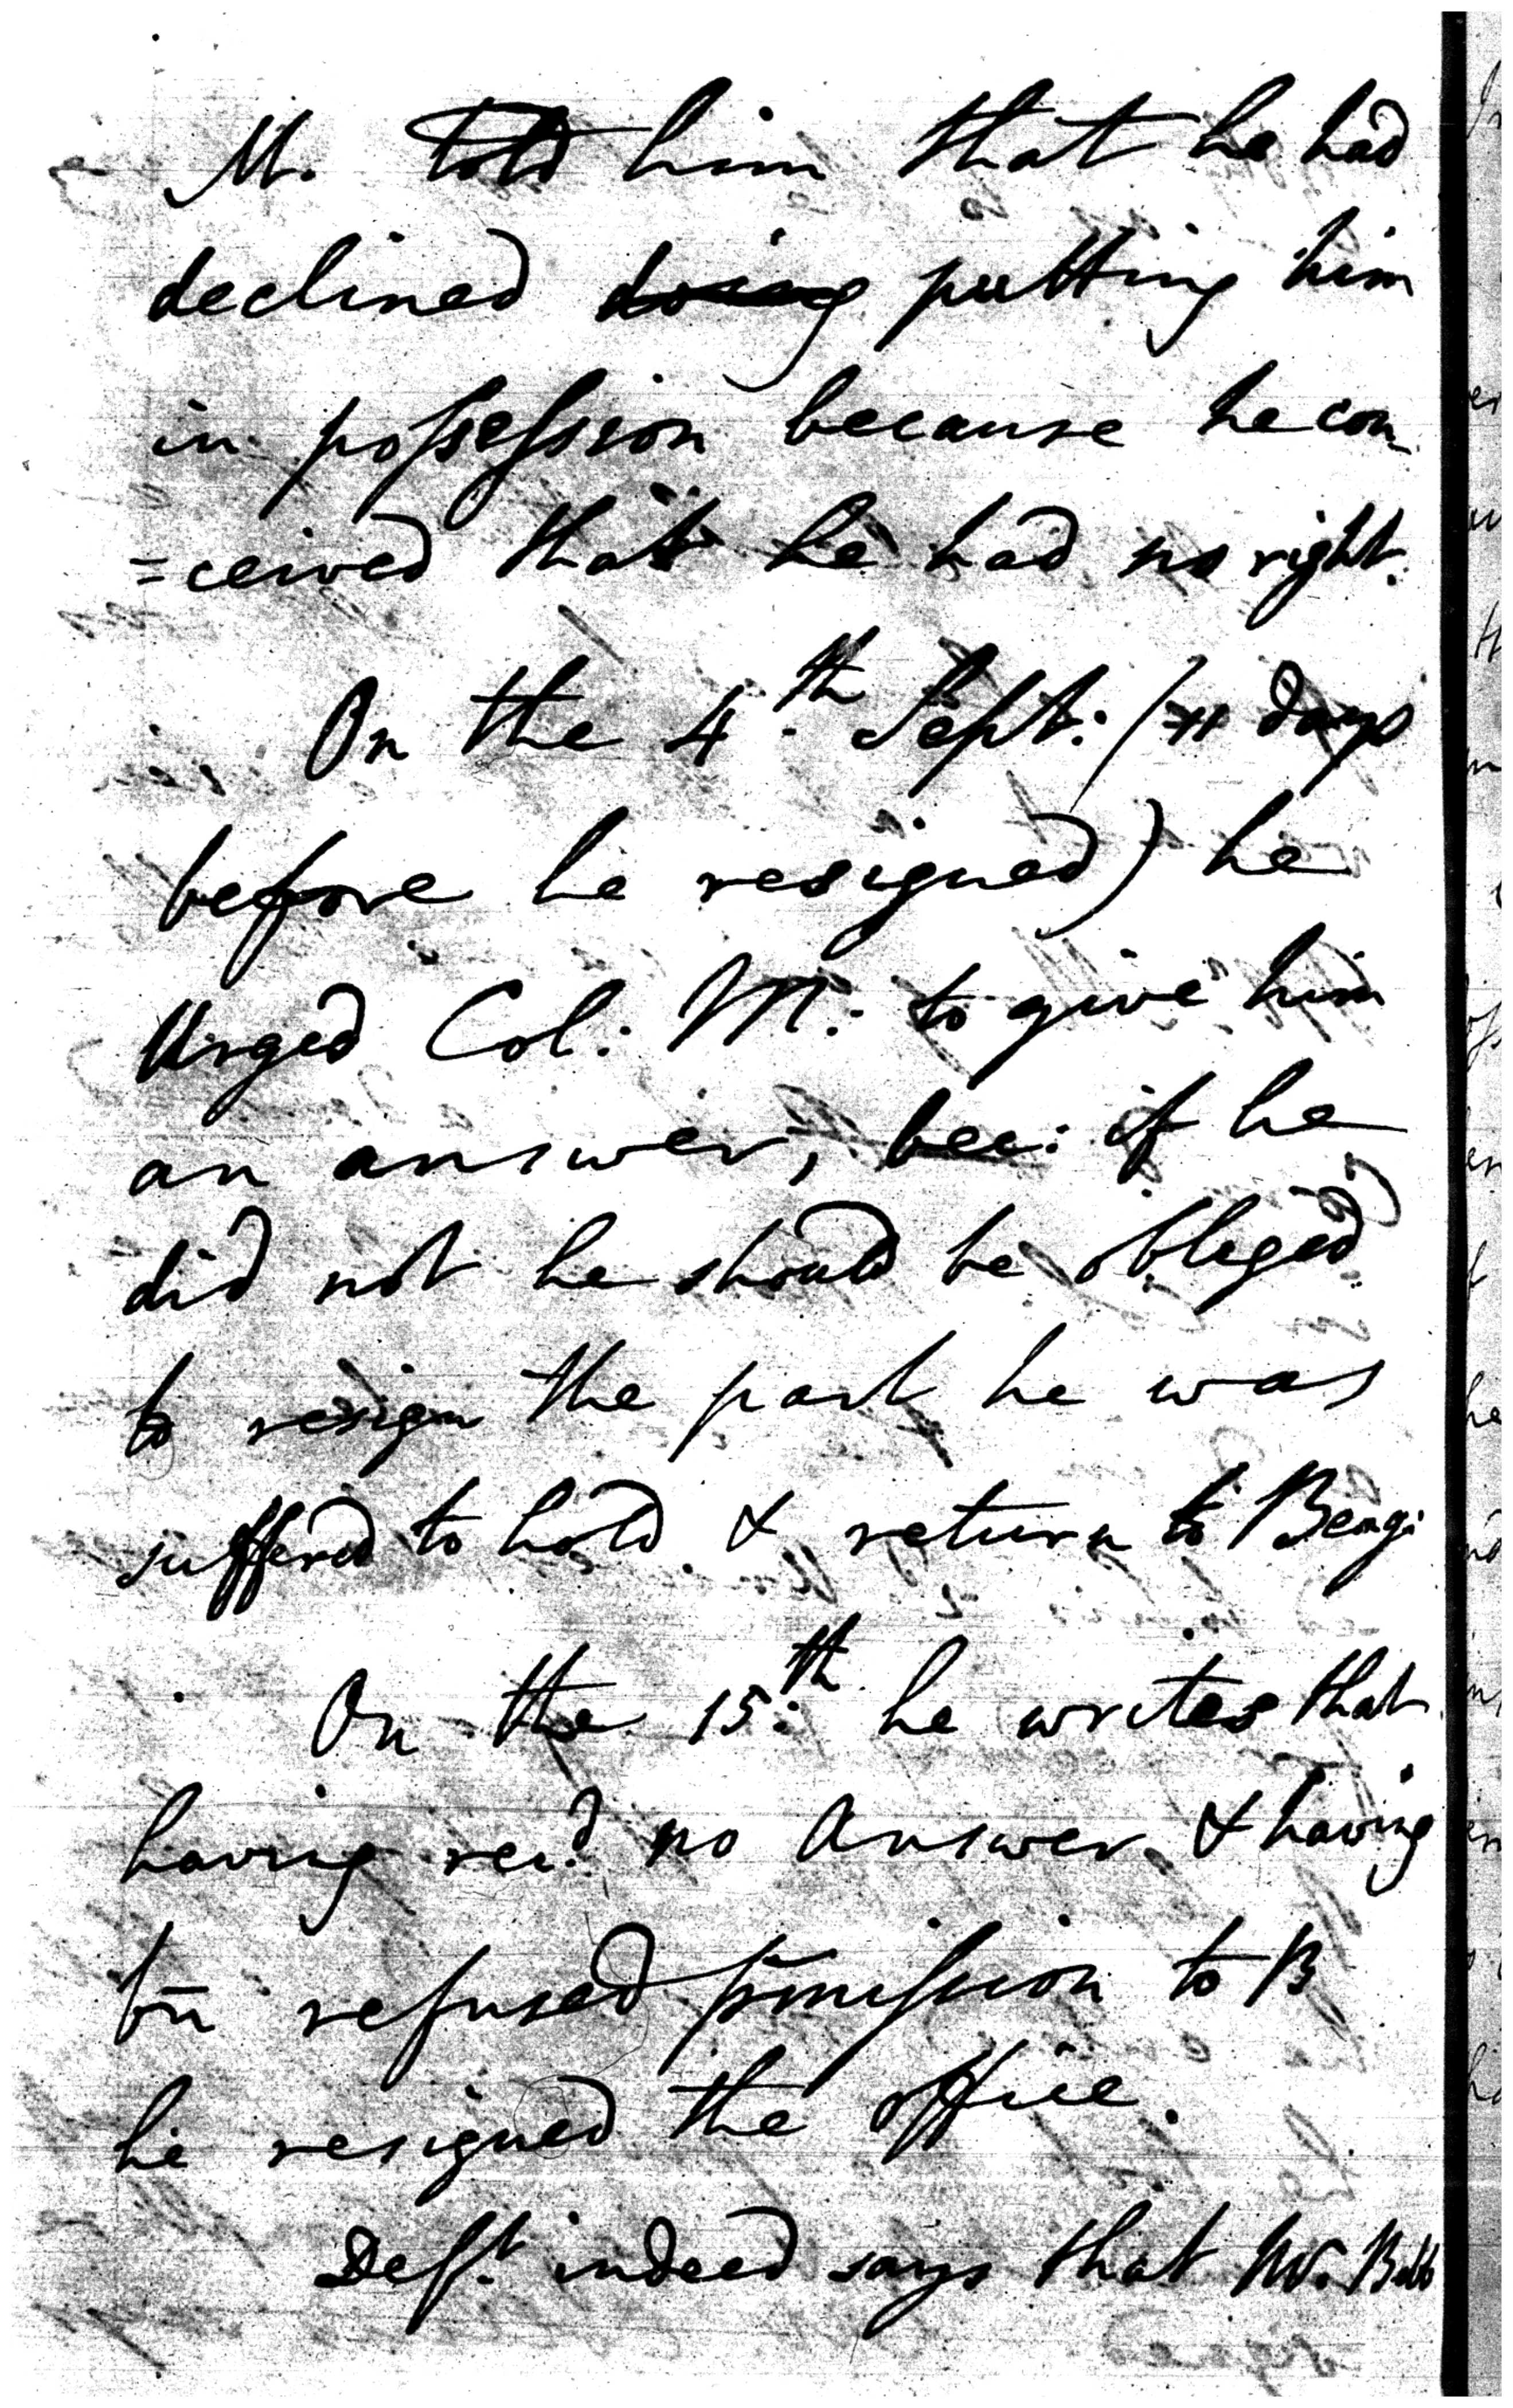 M. told him that he had
declined doing putting him
in possession because he con
=ceived that he had no right.
On the 4.th Sept: (11 days
before he resigned) he
Urged Col: M: to give him
an answer, bec: if he
did not he should be obleged
to resign the part he was
suffered to hold & return to Beng:
On the 15:th he writes that
having recd. no Answer & having
bn refused pmission to B
he resigned the office.
Deft. indeed says that Mr. Betts